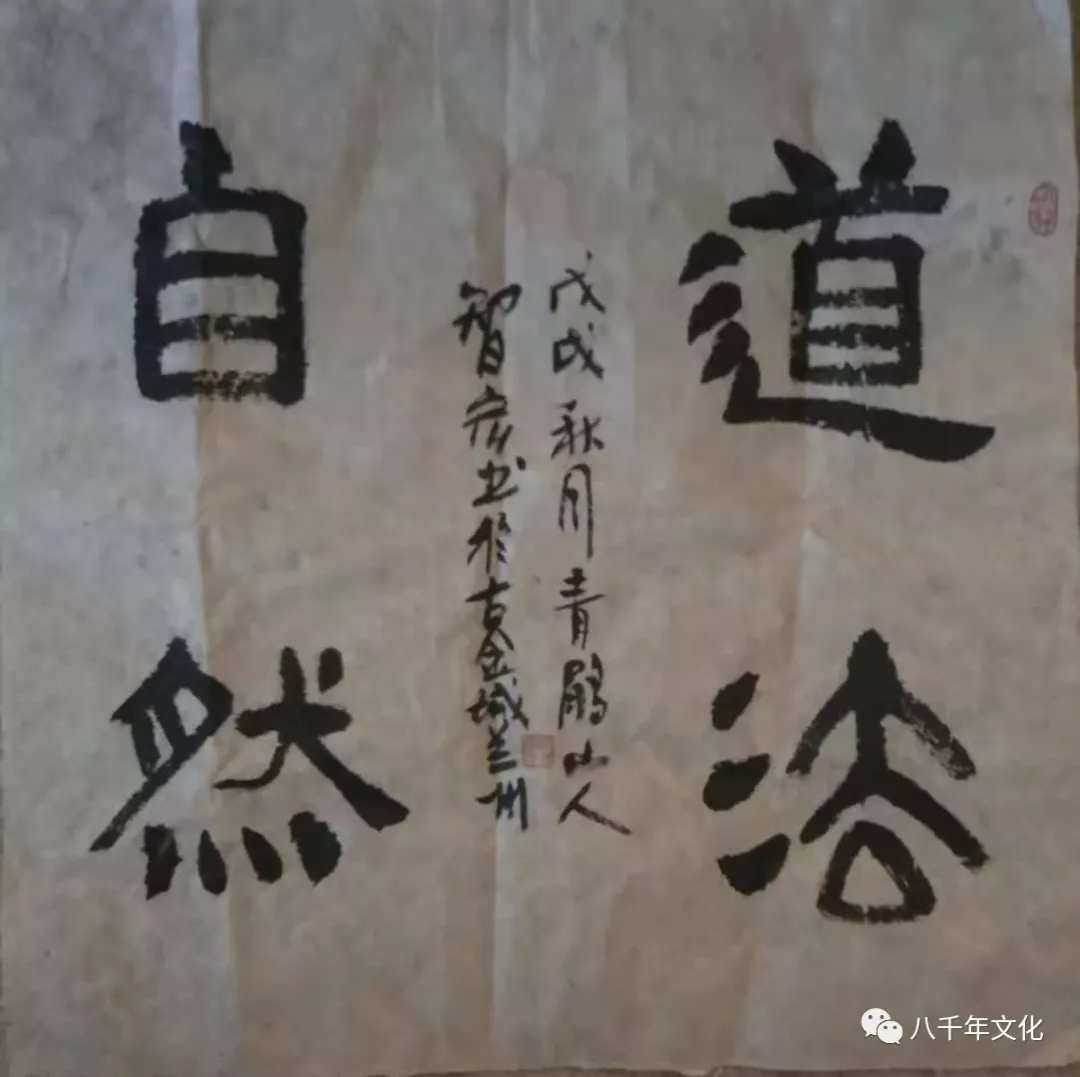 道法
自然
戊戌秋月青鹏山人
智宏书於古金城兰州
八千年文化